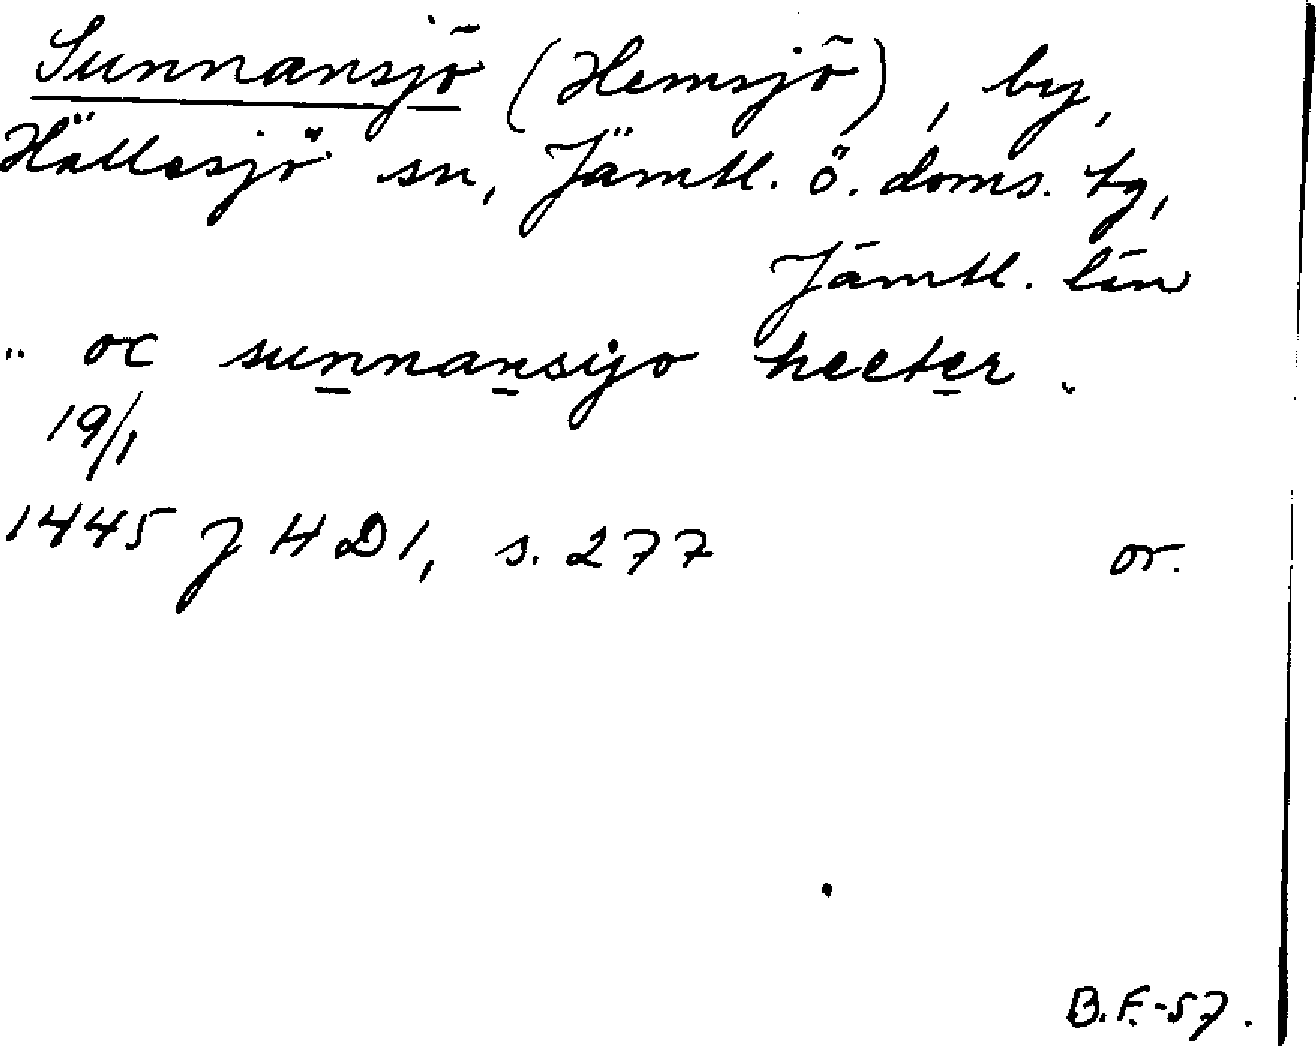 Sunnansjö (Hemsjö), by,
Hällesjö sn, Jämtl. ö. doms. tg,
Jämtl. län
" oc sunnansyo heeter "
19/1
1445 JHD1, s. 277 or.
B.F.-57.